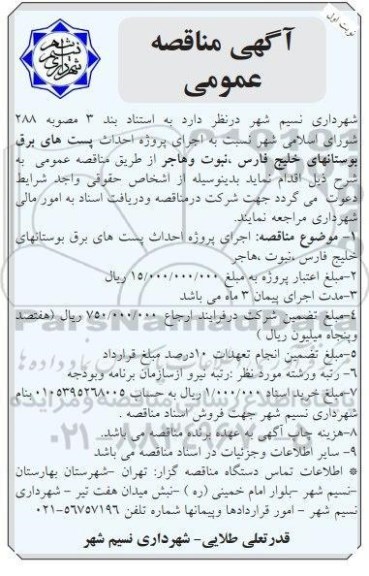 نوبت اول
آگهی مناقصه
عمومی
شهرداری نسیم شهر درنظر دارد به استناد بند ۳ مصوبه ۲۸۸
شورای اسلامی شهر نسبت به اجرای پروژه احداث پست های برق
بوستانهای خلیج فارس ،نبوت وهاجر از طریق مناقصه عمومی به
شرح ذیل اقدام نماید بدینوسیله از اشخاص حقوقی واجد شرایط
دعوت می گردد جهت شرکت درمناقصه ودریافت اسناد به امور مالی
شهرداری مراجعه نمایند.
۱- موضوع مناقصه: اجرای پروژه احداث پست های برق بوستانهای
خلیج فارس ،نبوت ،هاجر
۲-مبلغ اعتبار پروژه به مبلغ ۱۵/۰۰۰/۰۰۰/۰۰۰ ریال
۳-مدت اجرای پیمان ۳ ماه می باشد
۴-مبلغ تضمین شرکت درفرایند ارجاع ۷۵۰/۰۰۰/۰۰۰ ریال (هفتصد
وپنجاه میلیون ریال )
۵-مبلغ تضمین انجام تعهدات ۱۰درصد مبلغ قرارداد
۶- رتبه ورشته مورد نظر :رتبه نیرو ازسازمان برنامه وبودجه
۷-مبلغ خرید اسناد ۱/۰۰۰/۰۰۰ ریال به حساب ۰۱۰۵۳۹۵۲۶۸۰۰۵ بنام
شهرداری نسیم شهر جهت فروش اسناد مناقصه .
۸-هزینه چاپ آگهی به عهده برنده مناقصه می باشد.
۹- سایر اطلاعات وجزئیات در اسناد مناقصه می باشد
* اطلاعات تماس دستگاه مناقصه گزار: تهران -شهرستان بهارستان
-نسیم شهر -بلوار امام خمینی (ره ) -نبش میدان هفت تیر - شهرداری
نسیم شهر - امور قراردادها وپیمانها شماره تلفن ۵۶۷۵۷۱۹۶-۰۲۱
قدرتعلی طلایی- شهرداری نسیم شهر